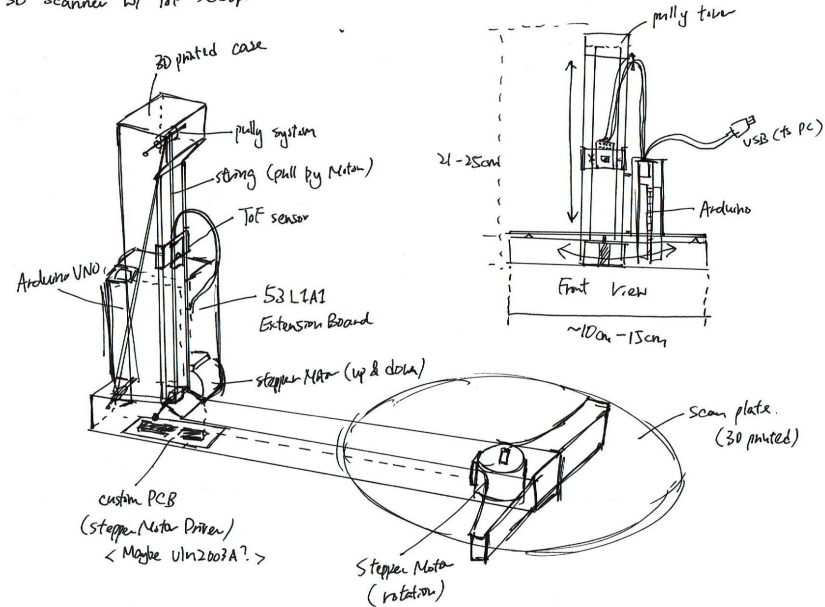 3D scanner w/ ToF
3D printed case
pully system
string (pull by Motor)
ToF sensor
Arduino UNO
53L1A1
Extension Board
stepper Motor (up & down)
custom PCB
(stepper Motor Driver)
< Maybe Uln2003A? >
Stepper Motor
(rotation)
scan plate.
(3D printed)
pully tower
21-25cm
USB (to PC)
Arduino
Front View
~10cm-15cm